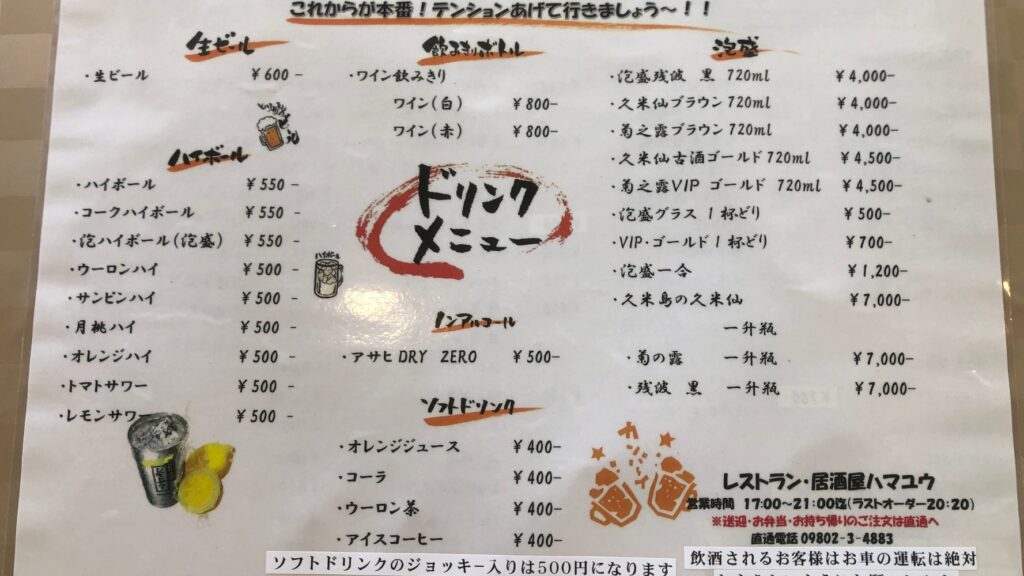 これからが本番！テンションあげて行きましょう～！！
生ビール
・生ビール ￥600 -
ハイボール
・ハイボール ￥550 -
・コークハイボール ￥550 -
・泡ハイボール(泡盛) ￥550 -
・ウーロンハイ ￥500 -
・サンピンハイ ￥500 -
・月桃ハイ ￥500 -
・オレンジハイ ￥500 -
・トマトサワー ￥500 -
・レモンサワー ￥500 -
飲みきりボトル
・ワイン飲みきり
ワイン(白) ￥800-
ワイン(赤) ￥800-
ドリンク
メニュー
ハイボール
ノンアルコール
・アサヒDRY ZERO ￥500-
ソフトドリンク
・オレンジジュース ￥400-
・コーラ ￥400-
・ウーロン茶 ￥400-
・アイスコーヒー ￥400-
ソフトドリンクのジョッキー入りは500円になります
泡盛
・泡盛残波 黒 720ml ￥4,000-
・久米仙ブラウン720ml ￥4,000-
・菊之露ブラウン720ml ￥4,000-
・久米仙古酒ゴールド720ml ￥4,500-
・菊之露VIP ゴールド 720ml ￥4,500-
・泡盛グラス 1杯どり ￥500-
・VIP・ゴールド1杯どり ￥700-
・泡盛一合 ￥1,200-
・久米島の久米仙 ￥7,000-
一升瓶
・菊の露 一升瓶 ￥7,000-
・残波 黒 一升瓶 ￥7,000-
カンパイ
レストラン・居酒屋ハマユウ
営業時間 17:00～21:00迄(ラストオーダー20:20)
※送迎・お弁当・お持ち帰りのご注文は直通へ
直通電話 09802-3-4883
飲酒されるお客様はお車の運転は絶対